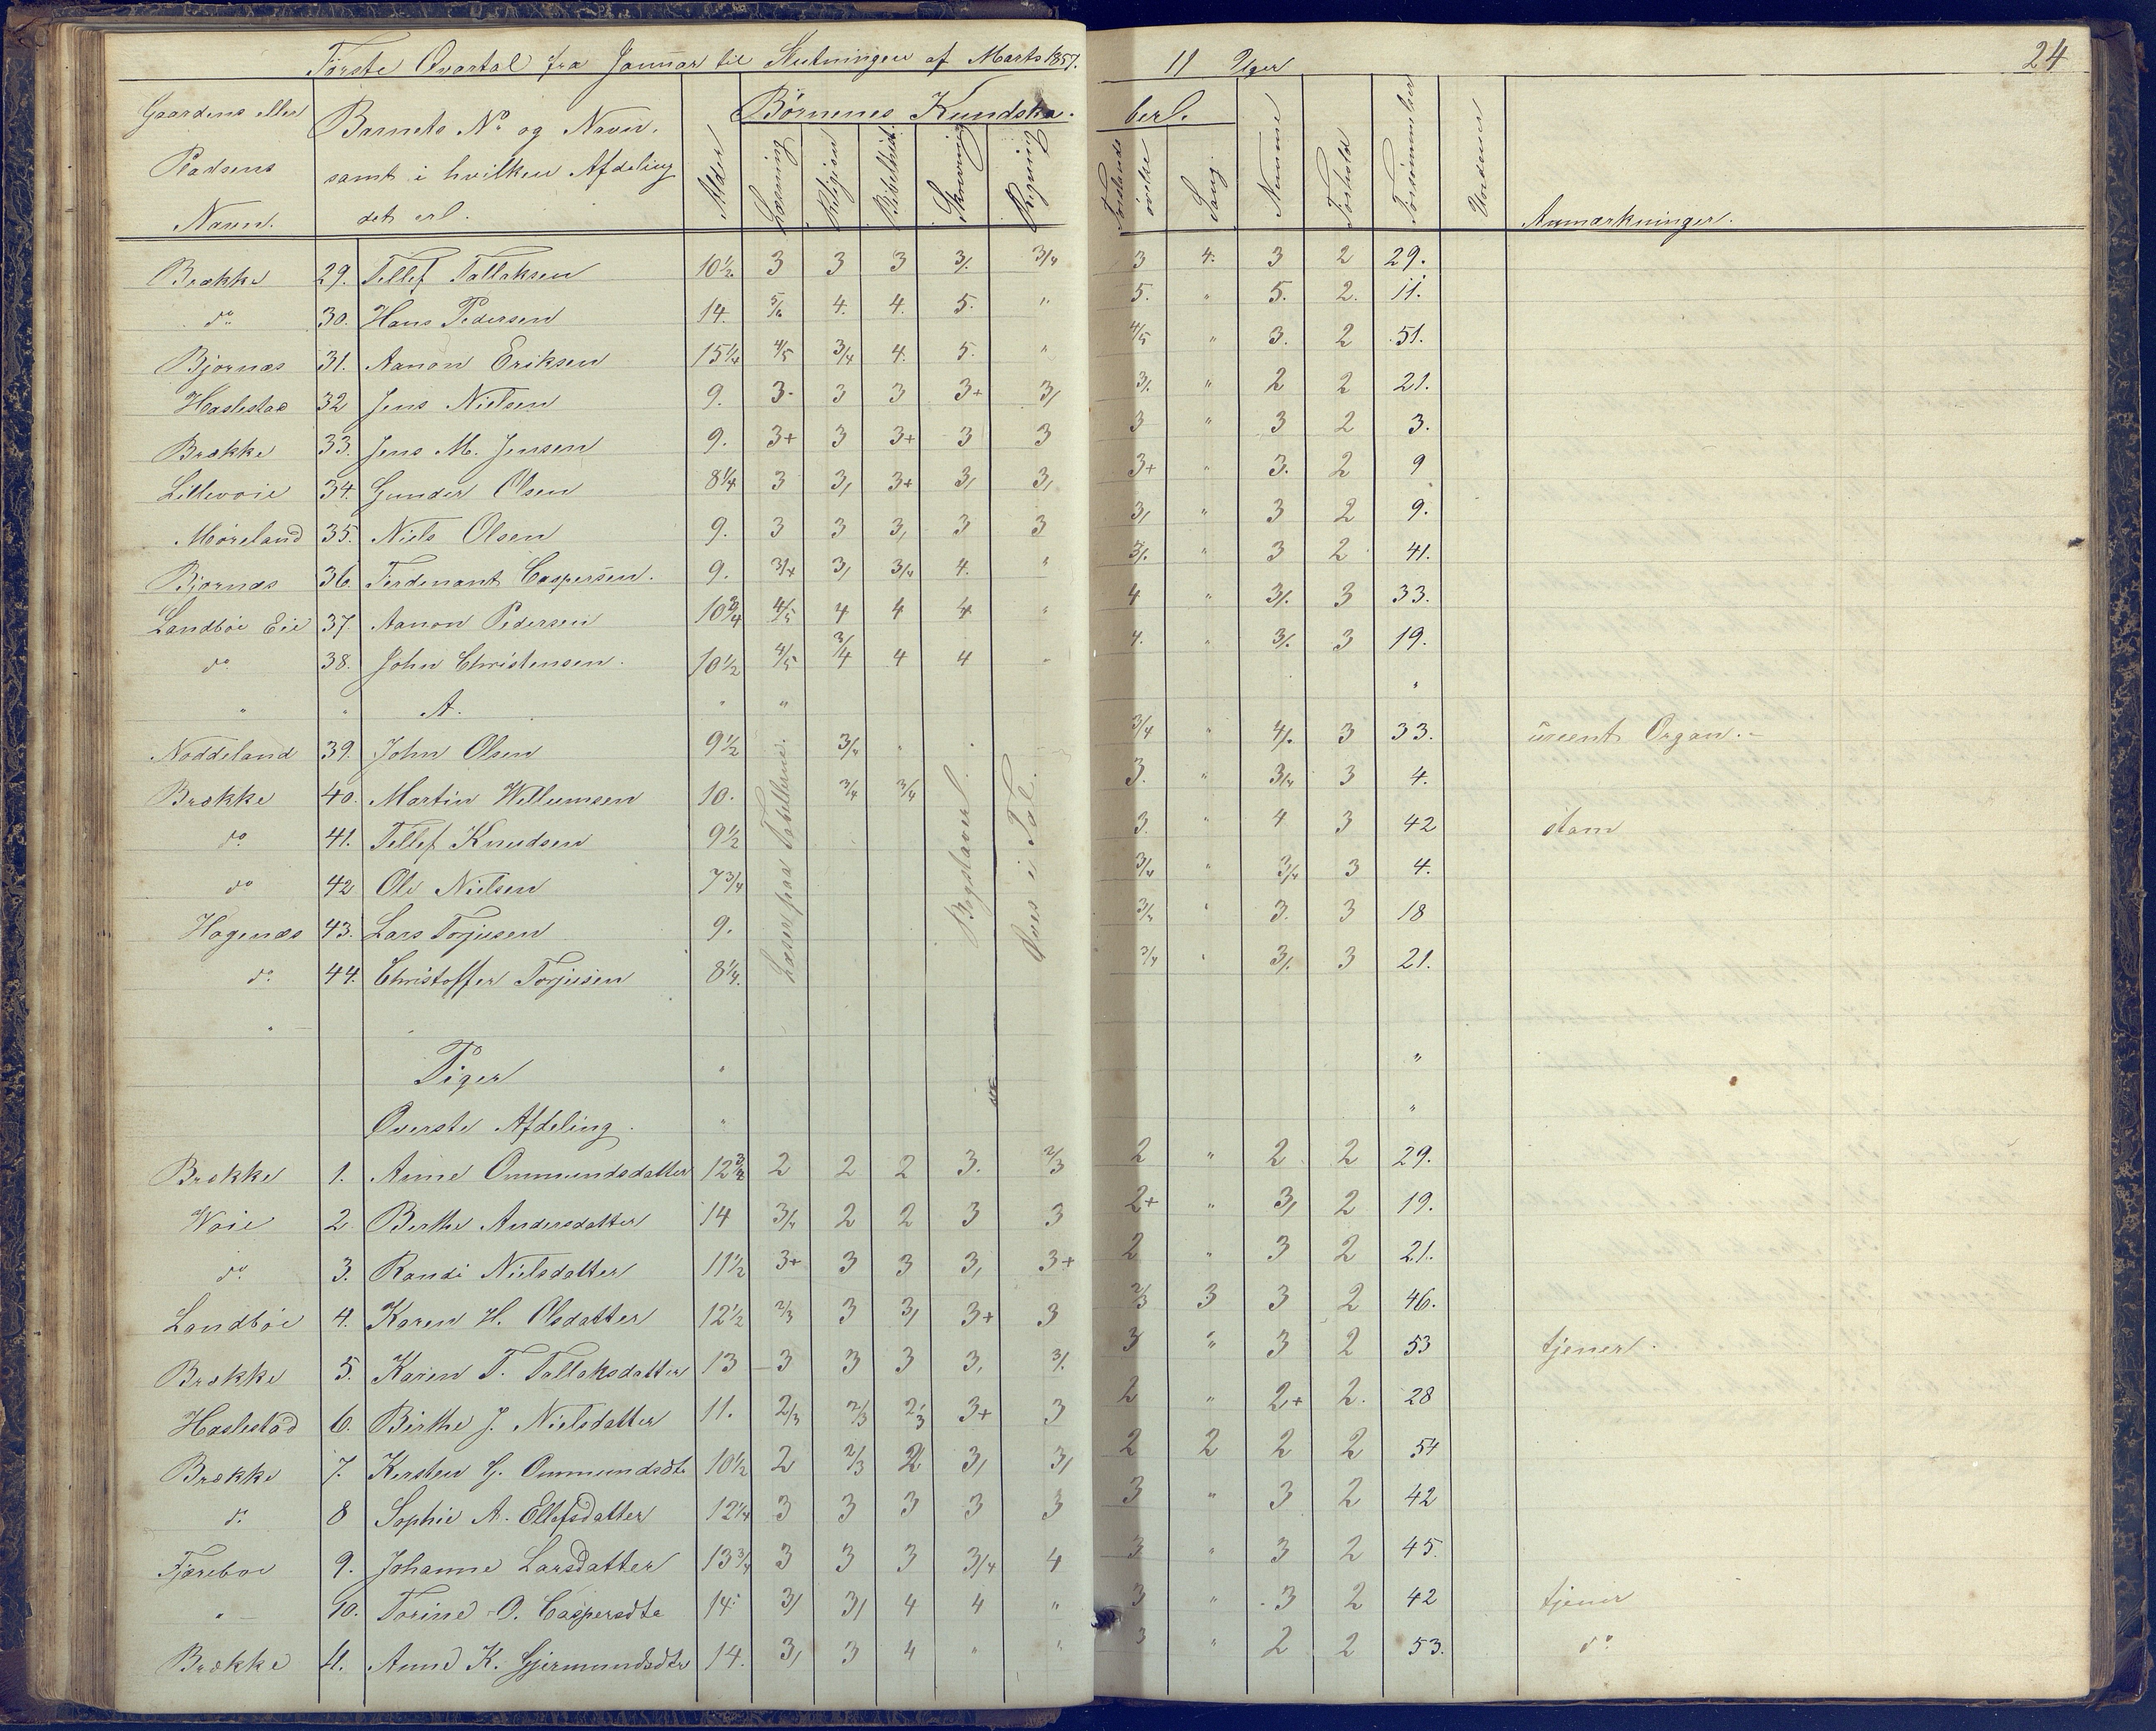 Første Qvartal fra Januar til Slutningen af Marts 1857. 11 Uger 24
Gaardens eller Pladsens Navn. Barnets No. og Navn. samt i hvilken Afdeling det er. Alder Børnenes Kundskaber.
Læsning Religion Skrivning Regning Forstands øvelse Sang. Nemme Forhold Forsømmelser Anmærkninger.
Brække 29. Tellef Tallaksen 10½ 3 3 3 3/. 3/4 3 4. 3 2 29.
do 30. Hans Pedersen 14. 5/6 4. 4. 5. " 5. " 5. 2. 11.
Bjornæs 31. Aanon Eriksen 15¼ 4/5 3/4 4. 5. " 4/5 " 3. 2 51.
Haslestad 32 Jens Nielsen 9. 3. 3 3 3+ 3/ 3/. " 2 2 21.
Brække 33. Jens M. Jensen 9. 3+ 3 3+ 3 3 3 " 3 2 3.
Lillevoie 34. Gunder Olsen 8¼ 3 3/ 3+ 3/ 3/ 3+ " 3. 2 9
Møreland 35. Niels Olsen 9. 3 3 3/ 3 3 3/ " 3 2 9.
Bjornæs 36. Ferdenant Caspersen. 9. 3/4 3/ 3/4 4. " 3/. " 3 2 41.
Landbøe Eie 37. Aanon Pedersen 10¾ 4/5 4 4 4 " 4 " 3/. 3 33.
do 38. John Christensen. 10½ 4/5 3/4 4 4 " 4. " 3/. 3 19.
" " A. " "
Noddeland 39. John Olsen 9½ 3/4 " 3/4 " 4/. 3 33. ureent Organ.
Brække 40. Martin Willumsen 10. 3/4 3/4 3. " 3/4 3 4.
do 41. Tellef Knudsen 9½ 3. " 4 3 42 stam
do 42 Ole Nielsen 7¾ 3/4 " 3/4 3 4.
Hagenæs 43. Lars Torjusen 9. 3/4 " 3. 3 18
do. 44. Christoffer Torjusen 8¼. 3/4 " 3/. 3 21.
Læser paa Tabellerne.
Bogstaver.
Øves i Tal.
Piger
Øverste Afdeling.
Brække 1. Anne Ommundsdatter 12¾ 2 2 2 3. 2/3 2 " 2 2 29.
Woie 2 Berthe Andersdatter 14 3/4 2 2 3 3 2+ " 3/ 2 19.
do. 3. Randi Nielsdatter 11½ 3+ 3 3 3/ 3+ 2 " 3 2 21.
Landbøe 4. Karen H. Olsdatter 12½ 2/3 3 3/ 3+ 3 2/3 3 3 2 46.
Brække 5. Karen T. Tallaksdatter 13 3 3 3 3/ 3/. 3 " 3 2 53 tjener.
Haslestad 6. Birthe J. Nielsdatter 11. 2/3 2/3 2/3 3+ 3 2 " 2+ 2. 28
Brække 7. Kersten G. Ommundsdtr 10½ 2 2/3 2 3/ 3/ 2 2 2 2 54
do. 8 Sophie A. Ellefsdatter 12¼ 3 3 3 3 3 3 " 3 2 42
Fjæreboe 9. Johanne Larsdatter 13¾ 3 3 3 3/4 4 3 " 3 2 45.
" 10. Torine O. Caspersdtr 14. 3/ 3/ 4 4 " 3 " 3 2 42 tjener
Brække 11. Anne K. Gjermundsdtr 14. 3/ 3 4 " " 3 " 2 2 53. do